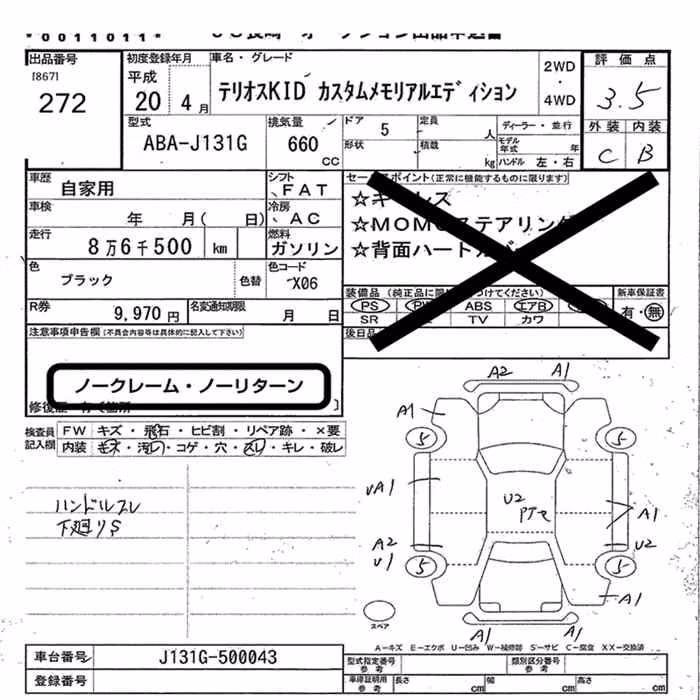 *0011011*
出品番号
[867]
272
初度登録年月
平成
20 4月
車名・グレード
テリオスKID カスタムメモリアルエディション
2WD
・
4WD
評価点
3.5
外装 内装
C B
型式
ABA-J131G
排気量
660
CC
ドア 5
形状
定員 人
積載 kg
ディーラー・並行
モデル年式 年
ハンドル 左・右
車歴
自家用
シフト
FAT
車検
年 月( 日)
冷房
AC
走行
8万6千500 km
燃料
ガソリン
色
ブラック
色替
色コード
X06
R券
9,970円
名変通知期限
月 日
セールスポイント(正常に機能するものに限ります)
☆キーレス
☆MOMOステアリング
☆背面ハードカバー
装備品
PS ABS エアB
SR TV カワ
新車保証書
有・無
後日品
注意事項申告欄(不具合内容等は具体的に記入して下さい)
ノークレーム・ノーリターン
検査員
記入欄
FW キズ・飛石・ヒビ割・リペア跡・×要
内装 モネ・汚レ・コゲ・穴・スレ・キレ・破レ
ハンドルスレ
下廻りS
A2 A1
A1
5 5
UA1
U2
A1
A2
U1
U2
5 5
A1
A1 A1
スペア
A-キズ E-エクボ U-凹み W-補修跡 S-サビ C-腐食 XX-交換済
車台番号
J131G-500043
登録番号
型式指定番号
参考
類別区分番号
参考
車庫証明用
参考
長さ cm
幅 cm
高さ cm